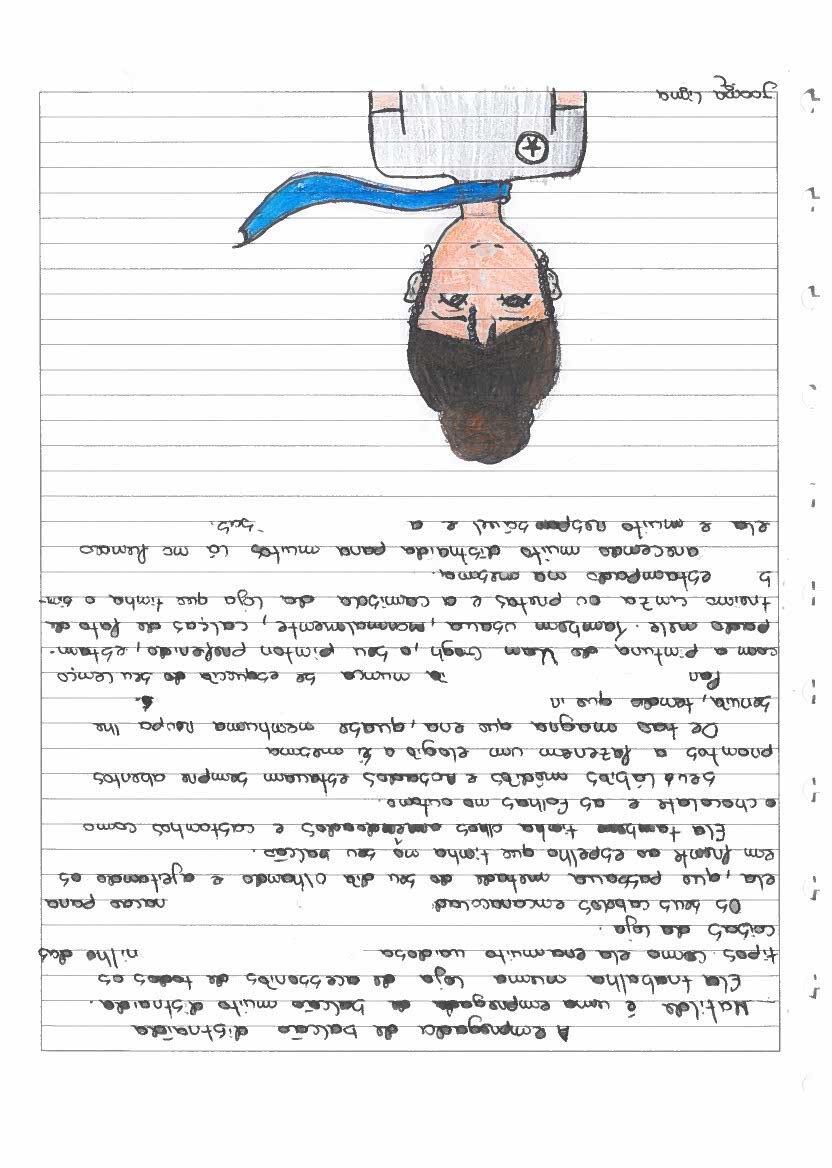 A empregada de balcão distraída
Matilde é uma empregada de balcão muito distraida.
Ela trabalha numa loja de acessórios de todos os
tipos. Como ela era muito vaidosa
coisas da loja.
Os seus cabelos encaracolad para
ela, que passava metade do seu dia olhando e ajeitando os
em frente ao espelho que tinha no seu balcão.
Ela tambem tinha olhos amendoados e castanhos como
o chocolate e as folhas no outono.
Seus lábios médios e rosados estavam sempre abertos
prontos a fazerem um elogio a si mesma
De tao magra que era, quase nenhuma roupa lhe
servia, tendo que ir
nunca se esquecia do seu lenço
com a pintura de Van Gogh, o seu pintor preferido, estam-
pado nele. Tambem usava, normalmente, calças de fato de
treino cinza ou pretas e a camisola da loja que tinha o sím-
b estampado na mesma.
arecendo muito distraida para muitos lá no fundo
ela e muito responsável e a